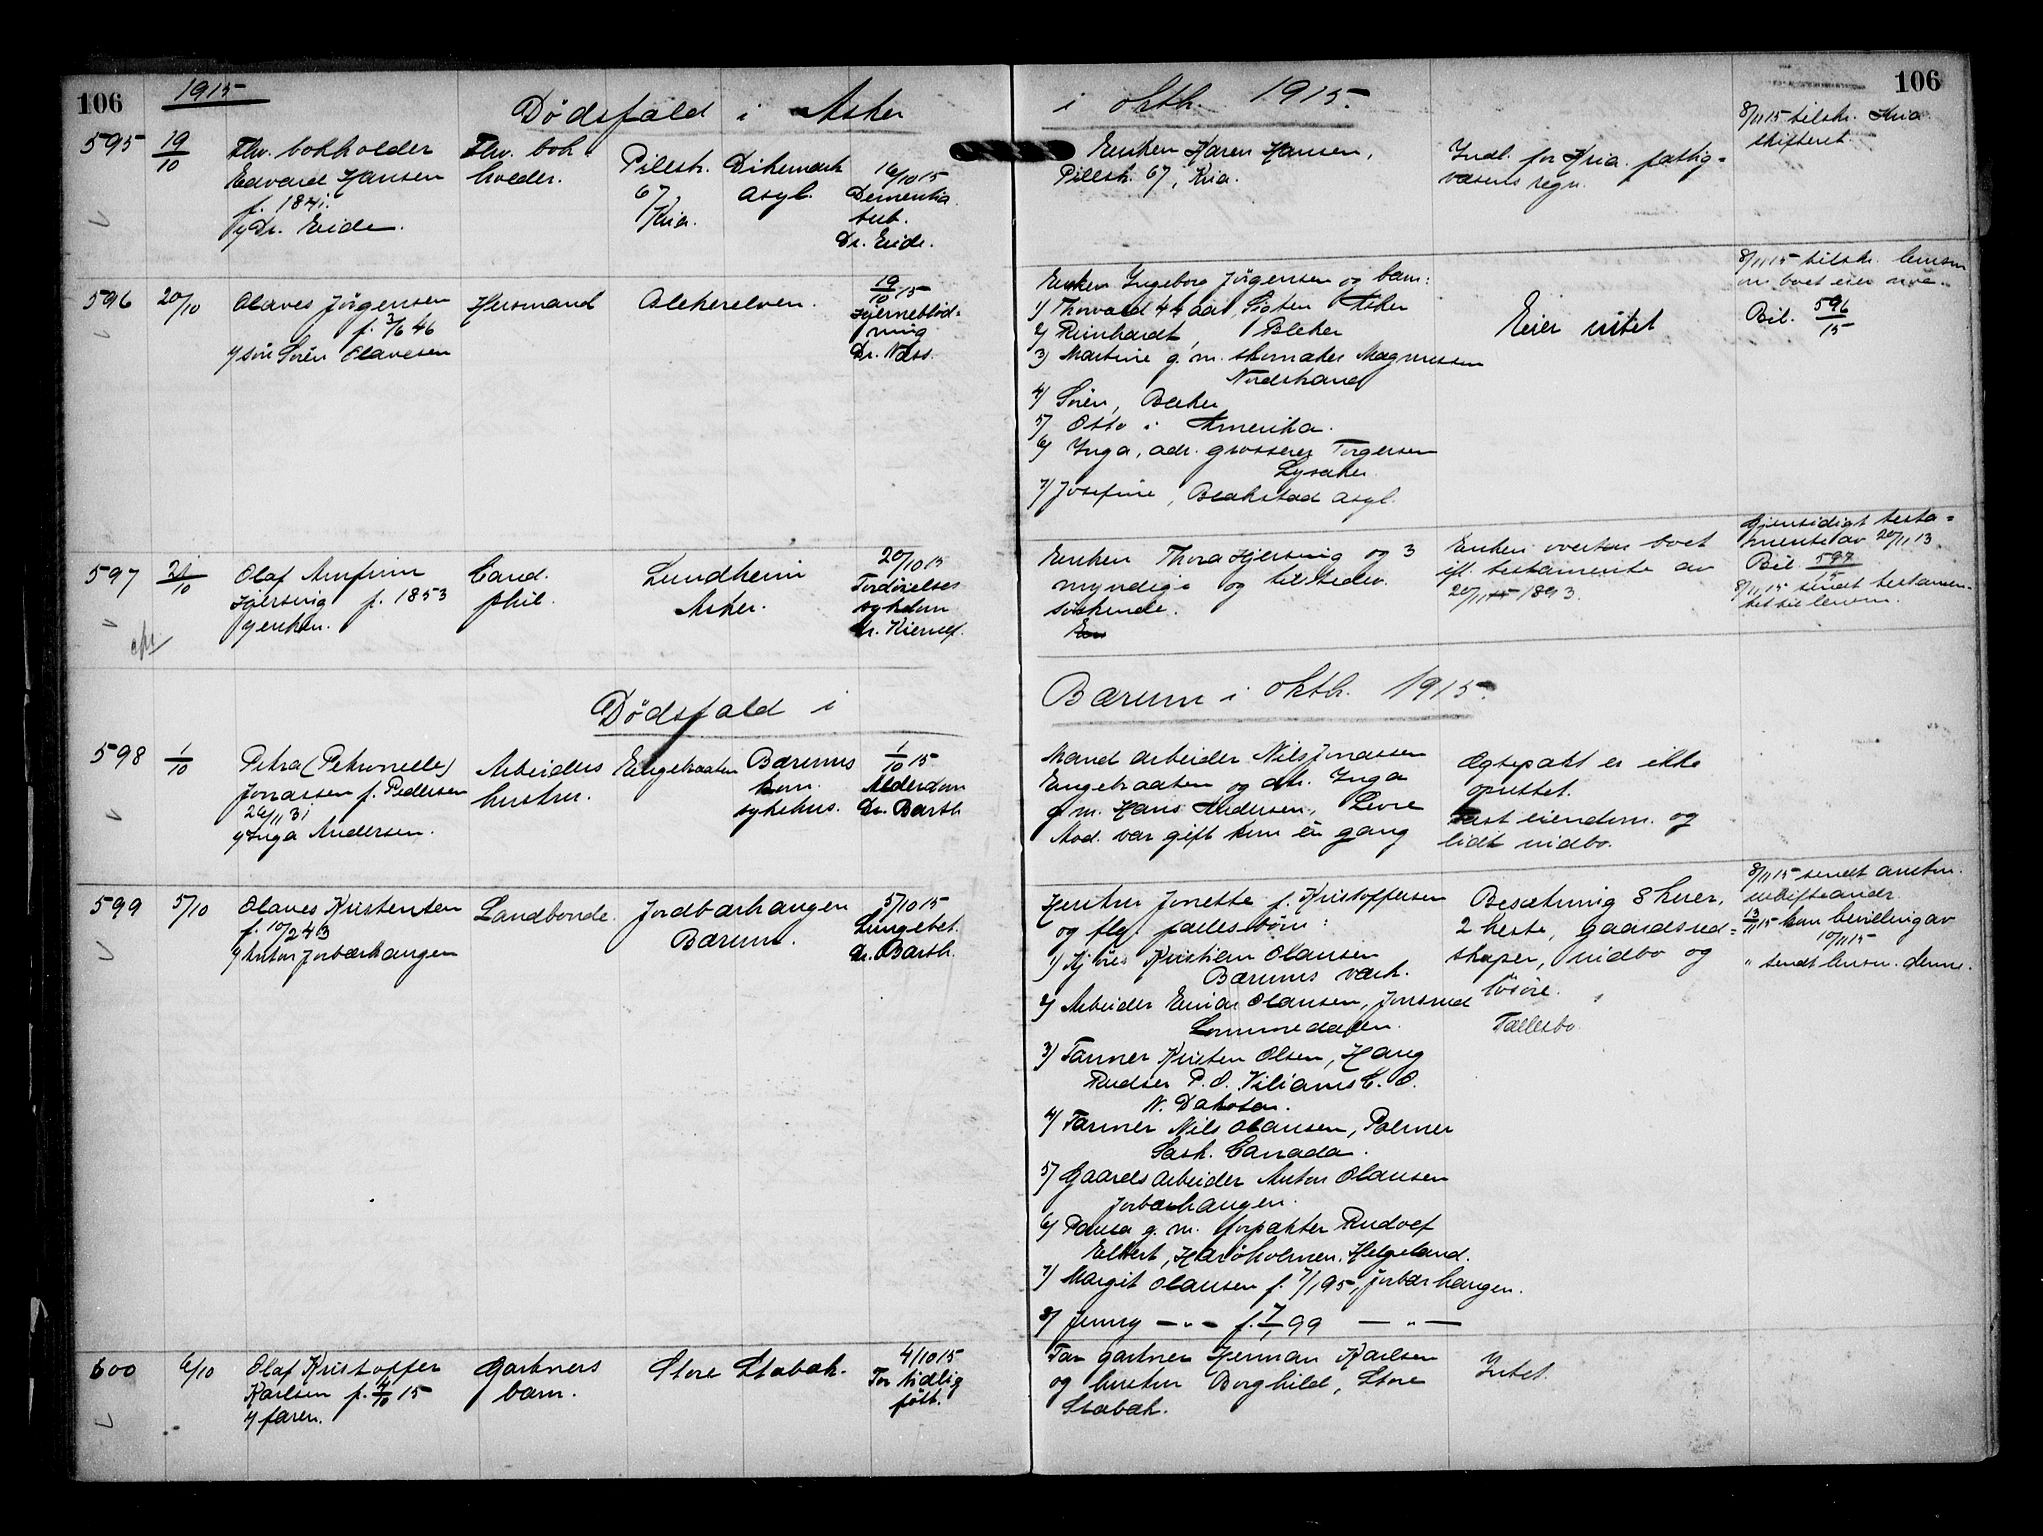 106
1915
Dødsfald i Asker
i oktbr. 1915.
106
595
19/10
Fhv. bokholder
Edvard Hansen
f. 1841.
v/ Dr. Eide.
Fhv. bok
holder.
Pilestr.
67
Kria.
Dikemark
asyl.
16/10 15
Dementia
Dr. Eide.
Enken Karen Hansen,
Pilestr. 67, Kria.
Indl. for Kria. fattig=
væsens regn.
8/11 15 tilskr. Kria
skifteret.
596
20/10
Olaves Jörgensen
f. 3/6 46
v/ søn Sørén Olavesen
Husmand
Blekerelven.
19/10 15
Hjerneblød=
ning
Dr. Næss.
Enken Ingeborg Jörgensen og barn:
1/ Thorvald 44 aar, Asker
2/ Reinhardt, Bleker
3/ Martine g. m. skomaker Magnussen
Nordstrand
4/ Sören, Bleker
5/ Otto i Amerika.
6/ Inga, adr. grosserer Torgersen
Lysaker.
7/ Josefine, Blakstad asyl.
Eier intet
8/11 15 tilskr. lensm
om boet eier noe.
Bil. 596/15
597
21/10
Olaf Arnfinn
f. 1853
v/ enken.
Cand.
phil.
Lundheim
Asker.
20/10 15
Fordöielses
sykdom
Enken Thora og 3
myndige og tilstedev.
søskende.
Enken overtar boet
ifl. testamente av
20/11 1893.
Gjensidigt testa=
mente av 20/11 13
Bil. 597/15
8/11 15 sendt testamen-
tet til lensm.
Dødsfald i
Bærum i oktbr. 1915.
598
1/10
Petra (Petronelle)
Jonassen f. Pedersen
26/11 31
v/ Inga Andersen.
Arbeiders
hustru.
Engebraaten
Bærums
kom.
sykehus.
1/10 15
Alderdom
Dr. Barth
Mand arbeider Nils Jonassen
Engebraaten og dtr. Inga
g. m. Hans Andersen,
Avd. var gift kun én gang
Ægtepakt er ikke
oprettet.
Fast eiendom og
lidt indbo.
599
5/10
Olaves Kristensen
f. 10/2 43
v/ Anton Jorbærhaugen
Landbonde.
Jordbærhaugen
Bærum.
5/10 15
Lungebet.
Dr. Barth.
Hustru Jonette f. Kristoffersen
og flg. fællesbörn:
1/ Kristian Olausen
Bærums værk.
2/ Arbeider Einar Olausen, Jonsrud
Lommedalen.
3/ Farmer Kristen Olsen, Haug
P. O. Viliams C. O.
N. Dakota.
4/ Farmer Nils Olausen, Palmer
Sask. Canada.
5/ Gaardsarbeider Anton Olausen
Jorbærhaugen.
6/ Paula g. m. forpakter Rudolf
Helgeland.
7/ Margit Olausen f. 7/1 95, Jorbærhaugen.
8/ Jenny — " — f. 7/1 99 — " —
Besætning 8 kuer,
2 heste, gaardsred=
skaper, indbo og
lösöre.
Fællesbo.
8/11 15 sendt anm.
13/11 15 kom bevilling av
10/11 15
" sendt lensm. denne.
600
6/10
Olaf Kristoffer
Karlsen f. 4/10 15
v/ faren.
Gartners
barn.
Store Stabæk.
4/10 15
For tidlig
født.
Far gartner Herman Karlsen
og hustru Borghild, Store
Stabæk.
Intet.